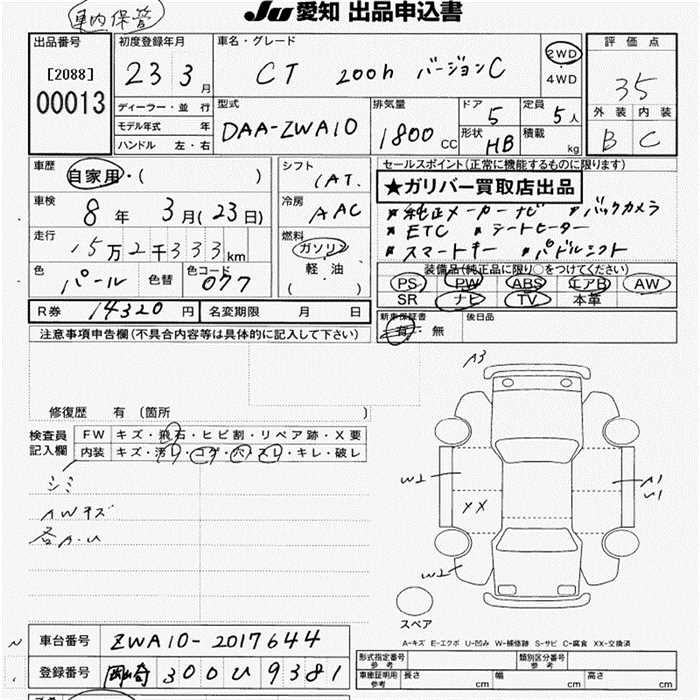 車内保管
JU 愛知 出品申込書
出品番号
[2088]
00013
初度登録年月
23 3 月
車名・グレード
CT 200h バージョンC
2WD
・
4WD
評価点
35
外装 内装
B C
ディーラー・並行
モデル年式 年
ハンドル 左・右
型式
DAA-ZWA10
排気量
1800 CC
ドア
5
形状
HB
定員
5 人
積載
kg
車歴
自家用・( )
車検
8 年 3 月(23日)
走行
15万2千333km
色
パール
色替
色コード
077
シフト
IAT.
冷房
AAC
燃料
ガソリン
軽油
( )
セールスポイント(正常に機能するものに限ります)
★ガリバー買取店出品
*純正メーカーナビ *バックカメラ
*ETC *シートヒーター
*スマートキー *パドルシフト
装備品(純正品に限り○をつけてください)
PS PW ABS エアB AW
SR ナビ TV 本革
R券 14320 円
名変期限 月 日
新車保証書
有・無
後日品
注意事項申告欄(不具合内容等は具体的に記入して下さい)
修復歴 有 (箇所 )
検査員
記入欄
FW キズ・飛石・ヒビ割・リペア跡・X要
内装 キズ・汚レ・コゲ・穴・スレ・キレ・破レ
シミ
AWキズ
各A.U
A3
W2
A1
U1
XX
W2
スペア
A-キズ E-エクボ U-凹み W-補修跡 S-サビ C-腐食 XX-交換済
車台番号 ZWA10-2017644
登録番号 岡崎 300 ひ 9381
形式指定番号
参考
類別区分番号
参考
車庫証明用
参考
長さ cm
幅 cm
高さ cm